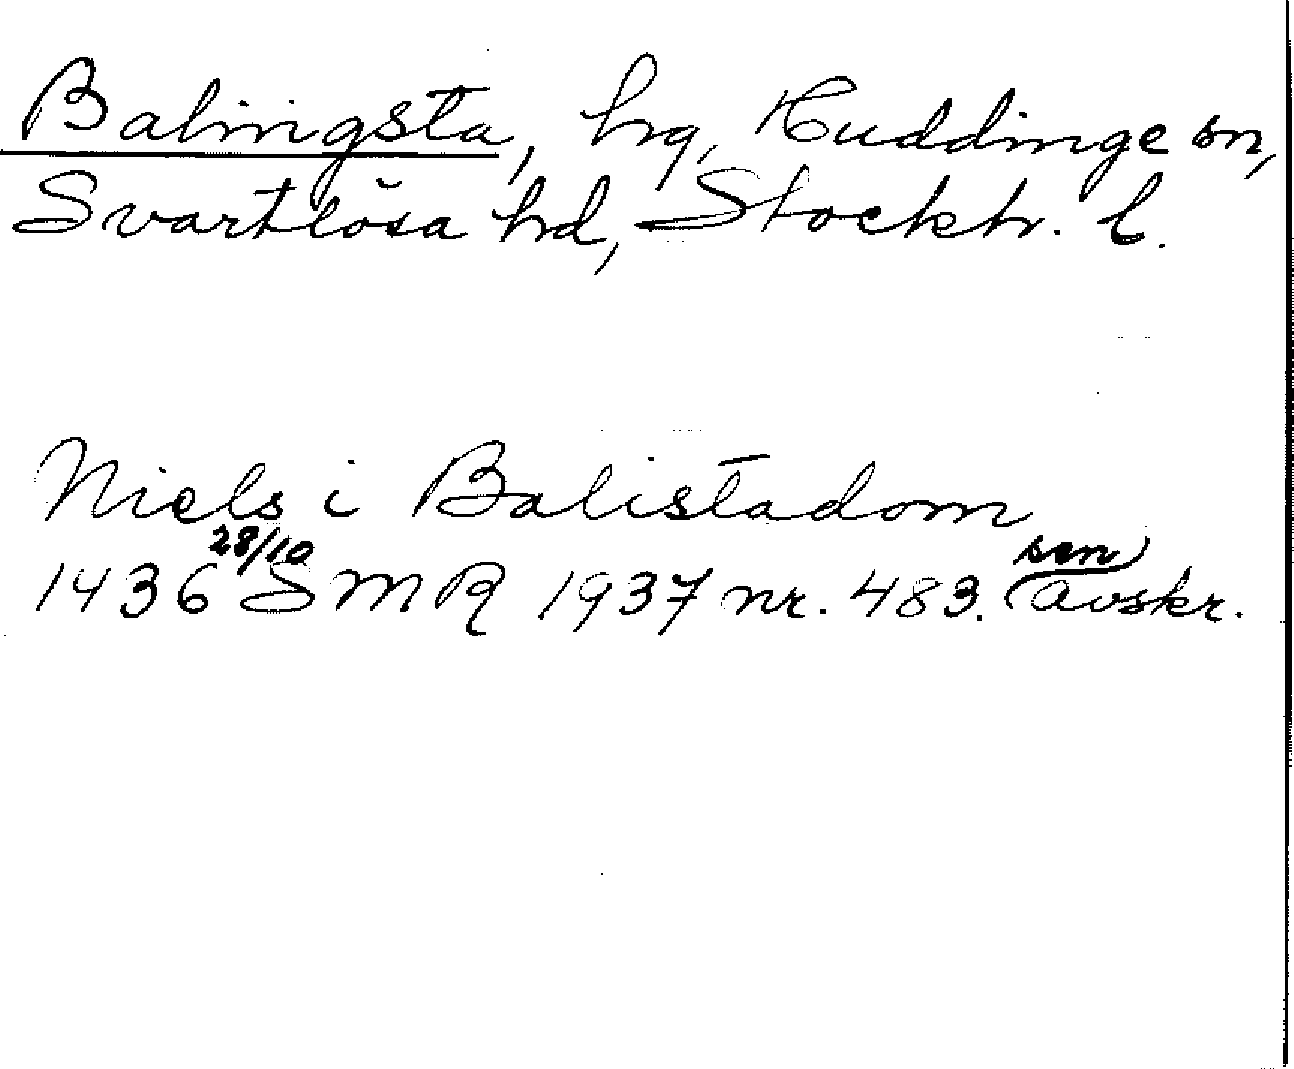 Balingsta, hrg, Huddinge sn,
Svartlösa hd, Stockh. l.
Niels i Balistadom
1436 28/10 SMR 1937 nr. 483. sen avskr.